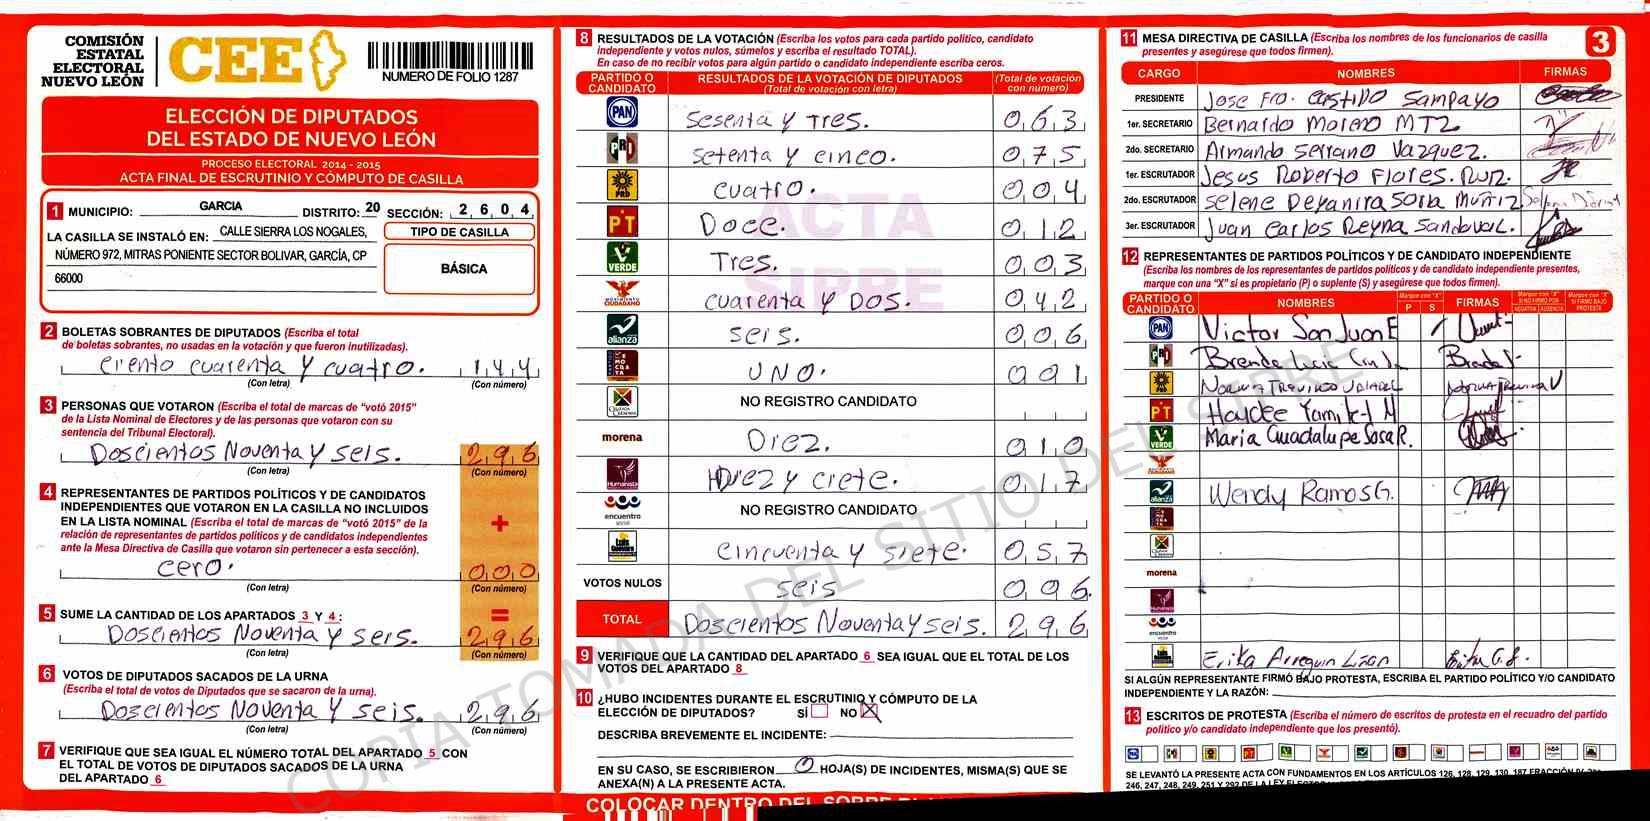 COMISIÓN
ESTATAL
ELECTORAL
NUEVO LEÓN
CEE
NUMERO DE FOLIO 1287
ELECCIÓN DE DIPUTADOS
DEL ESTADO DE NUEVO LEÓN
PROCESO ELECTORAL 2014 - 2015
ACTA FINAL DE ESCRUTINIO Y CÓMPUTO DE CASILLA
1 MUNICIPIO: GARCIA DISTRITO: 20 SECCIÓN: 2 6 0 4
LA CASILLA SE INSTALÓ EN: CALLE SIERRA LOS NOGALES,
NÚMERO 972, MITRAS PONIENTE SECTOR BOLIVAR, GARCÍA, CP
66000
TIPO DE CASILLA
BÁSICA
2 BOLETAS SOBRANTES DE DIPUTADOS (Escriba el total
de boletas sobrantes, no usadas en la votación y que fueron inutilizadas).
ciento cuarenta y cuatro. 1 4 4
(Con letra) (Con número)
3 PERSONAS QUE VOTARON (Escriba el total de marcas de "votó 2015"
de la Lista Nominal de Electores y de las personas que votaron con su
sentencia del Tribunal Electoral).
Doscientos Noventa y seis. 2 9 6
(Con letra) (Con número)
4 REPRESENTANTES DE PARTIDOS POLÍTICOS Y DE CANDIDATOS
INDEPENDIENTES QUE VOTARON EN LA CASILLA NO INCLUIDOS
EN LA LISTA NOMINAL (Escriba el total de marcas de "votó 2015" de la
relación de representantes de partidos políticos y de candidatos independientes
ante la Mesa Directiva de Casilla que votaron sin pertenecer a esta sección).
+
cero. 0 0 0
(Con letra) (Con número)
=
5 SUME LA CANTIDAD DE LOS APARTADOS 3 Y 4:
Doscientos Noventa y seis. 2 9 6
(Con letra) (Con número)
6 VOTOS DE DIPUTADOS SACADOS DE LA URNA
(Escriba el total de votos de Diputados que se sacaron de la urna).
Doscientos Noventa y seis. 2 9 6
(Con letra) (Con número)
7 VERIFIQUE QUE SEA IGUAL EL NÚMERO TOTAL DEL APARTADO 5 CON
EL TOTAL DE VOTOS DE DIPUTADOS SACADOS DE LA URNA
DEL APARTADO 6
8 RESULTADOS DE LA VOTACIÓN (Escriba los votos para cada partido político, candidato
independiente y votos nulos, súmelos y escriba el resultado TOTAL).
En caso de no recibir votos para algún partido o candidato independiente escriba ceros.
PARTIDO O CANDIDATO RESULTADOS DE LA VOTACIÓN DE DIPUTADOS (Total de votación con letra) (Total de votación con número)
PAN Sesenta y Tres. 0 6 3
PRI Setenta y cinco. 0 7 5
PRD cuatro. 0 0 4
PT Doce. 0 1 2
VERDE Tres. 0 0 3
MOVIMIENTO CIUDADANO cuarenta y Dos. 0 4 2
alianza seis. 0 0 6
DEMOCRATA UNO. 0 0 1
NO REGISTRO CANDIDATO
morena Diez. 0 1 0
Humanista Diez y ciete. 0 1 7
encuentro social NO REGISTRO CANDIDATO
cincuenta y siete. 0 5 7
VOTOS NULOS seis 0 0 6
TOTAL Doscientos Noventa y seis. 2 9 6
ACTA
SIPRE
9 VERIFIQUE QUE LA CANTIDAD DEL APARTADO 6 SEA IGUAL QUE EL TOTAL DE LOS
VOTOS DEL APARTADO 8
10 ¿HUBO INCIDENTES DURANTE EL ESCRUTINIO Y CÓMPUTO DE LA
ELECCIÓN DE DIPUTADOS? SÍ NO X
DESCRIBA BREVEMENTE EL INCIDENTE:
EN SU CASO, SE ESCRIBIERON 0 HOJA(S) DE INCIDENTES, MISMA(S) QUE SE
ANEXA(N) A LA PRESENTE ACTA.
COLOCAR DENTRO DEL SOBRE
11 MESA DIRECTIVA DE CASILLA (Escriba los nombres de los funcionarios de casilla
presentes y asegúrese que todos firmen).
3
CARGO NOMBRES FIRMAS
PRESIDENTE Jose Fco. Castillo Sampayo
1er. SECRETARIO Bernardo Moreno MTZ
2do. SECRETARIO Armando Serrano Vazquez.
1er. ESCRUTADOR Jesus Roberto Flores. Ruiz.
2do. ESCRUTADOR Selene Deyanira Soria Muñiz
3er. ESCRUTADOR Juan Carlos Reyna Sandoval.
12 REPRESENTANTES DE PARTIDOS POLÍTICOS Y DE CANDIDATO INDEPENDIENTE
(Escriba los nombres de los representantes de partidos políticos y de candidato independiente presentes,
marque con una "X" si es propietario (P) o suplente (S) y asegúrese que todos firmen).
PARTIDO O CANDIDATO NOMBRES Marque con "X" P S FIRMAS Marque con "X" SI NO FIRMÓ POR NEGATIVA AUSENCIA Marque con "X" SI FIRMÓ BAJO PROTESTA
PAN Victor San Juan E
PRI Brenda
PRD Norma Treviño
PT Haydee Yamilet M
VERDE Maria Guadalupe Sosa R.
alianza Wendy Ramos G.
morena
Humanista
encuentro social
Erika Arreguin
SI ALGÚN REPRESENTANTE FIRMÓ BAJO PROTESTA, ESCRIBA EL PARTIDO POLÍTICO Y/O CANDIDATO
INDEPENDIENTE Y LA RAZÓN:
13 ESCRITOS DE PROTESTA (Escriba el número de escritos de protesta en el recuadro del partido
político y/o candidato independiente que los presentó).
SE LEVANTÓ LA PRESENTE ACTA CON FUNDAMENTOS EN LOS ARTÍCULOS 126, 128, 129, 130, 187 FRACCIÓN
246, 247, 248, 249, 251 Y 292 DE LA LEY
COPIA TOMADA DEL SITIO DEL SIPRE